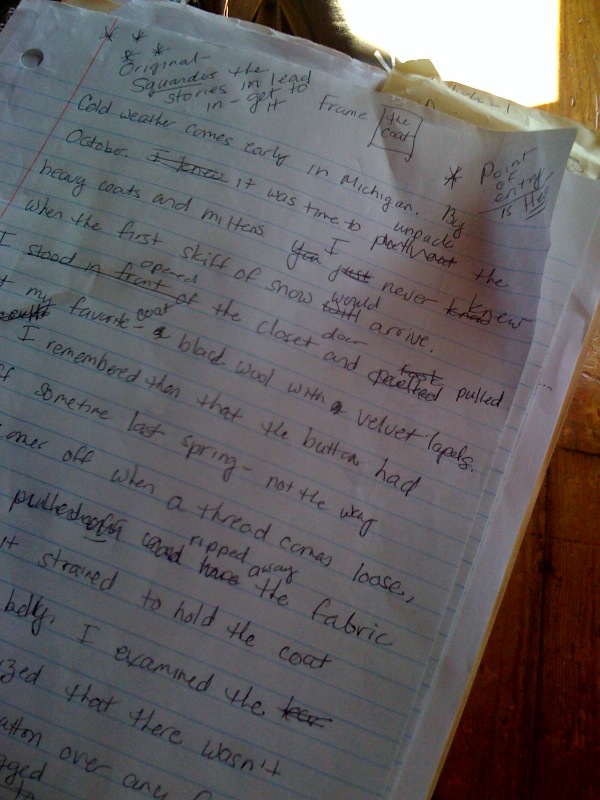 * * *
* *
Original -
Squanders the
stories in lead
in - get to
it
Frame [the coat]
* Point
of
entry
is Here
Cold weather comes early in Michigan. By
October. I knew it was time to unpack the
heavy coats and mittens you I just never knew
when the first skiff of snow will would arrive.
I stood in front of opened the closet door and pulled
my favorite coat - a black wool with a velvet lapels.
I remembered then that the button had
sometime last spring - not the way
off when a thread comes loose,
pulled ripped away the fabric
it strained to hold the coat
belly. I examined the
zed that there wasn't
utton over any
gged